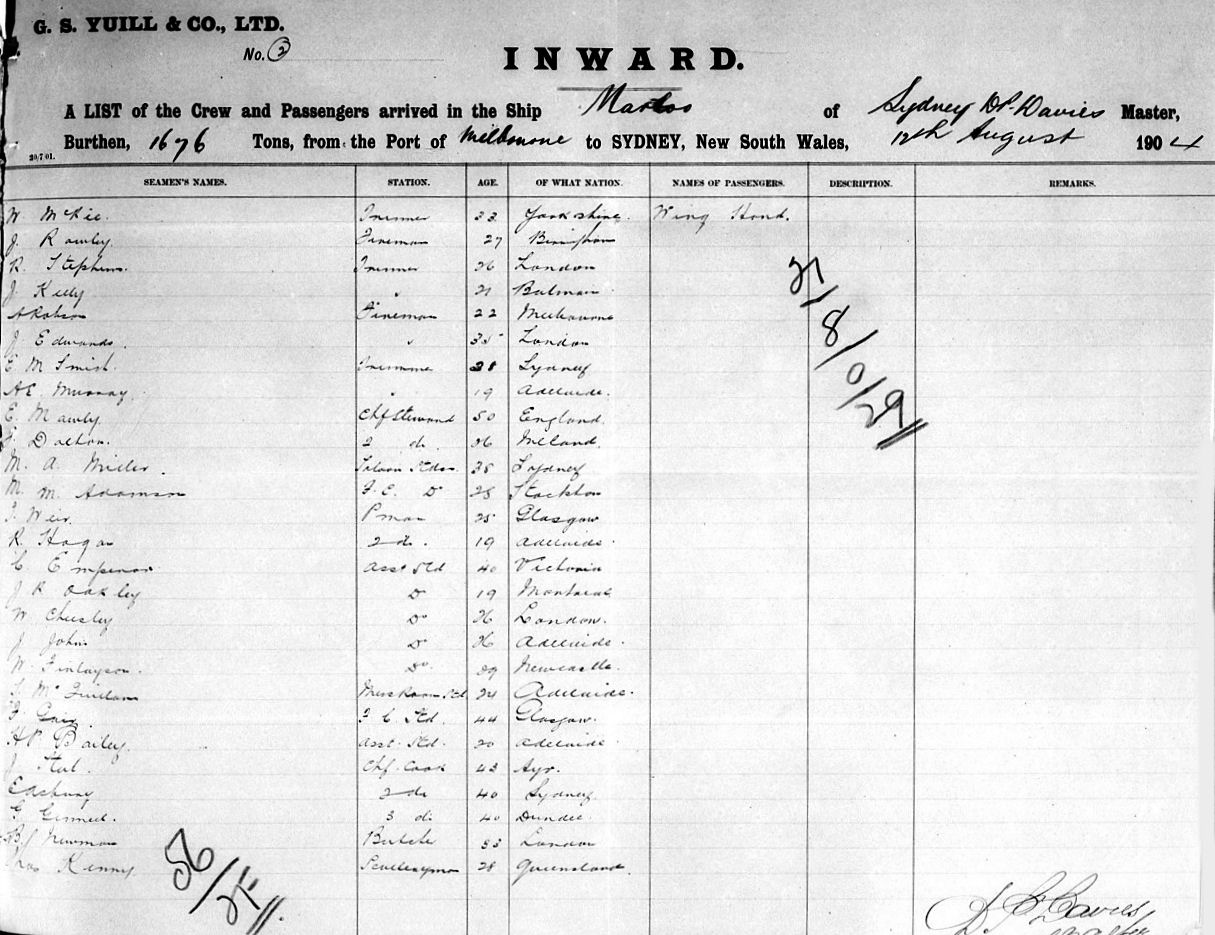 G. S. YUILL & CO., LTD.
No. 2
INWARD.
A LIST of the Crew and Passengers arrived in the Ship of Sydney Davies Master,
Burthen, 1676 Tons, from the Port of Melbourne to SYDNEY, New South Wales, 12th August 1904
20/7 01.
SEAMEN'S NAMES. STATION. AGE. OF WHAT NATION. NAMES OF PASSENGERS. DESCRIPTION. REMARKS.
W McKie. Trimmer Yorkshire. Wing Hond.
J. Rowley Fireman 27
R. Stephens. Trimmer 26 London
J Kelly " 21 Balmain
A Robson Fireman 22 Melbourne
J. Edwards " 35 London
E M Smith. Trimmer 28 Sydney
AE Murray. " 19 Adelaide.
E. Mawly Chf Steward 50 England.
Dalton. 2 do. 36 Ireland.
M. A. Miller. Saloon Stdss. 35 Sydney
M. M. Adamson D 28 Stockton
Weir. Pman 25 Glasgow
R. Hogan 2 do. 19 Adelaide.
C. Emperor Asst Std 40 Victoria
J R Oakley Do 19 Montreal
W. Do 26 London.
J. John Do 26 Adelaide.
W. Finlayson. Do 29 Newcastle.
Mess Room Std 24 Adelaide.
Std. 44 Glasgow.
H P. Bailey. Asst. Std. 20 Adelaide
J. Chf. Cook 43 Ayr.
2 do 40 Sydney
G 3 do. 40 Dundee.
Newman Butcher 33 London
Chas Kenny. Sculleryman 28 Queensland.
27/8/0/29
56/
Davies
Master